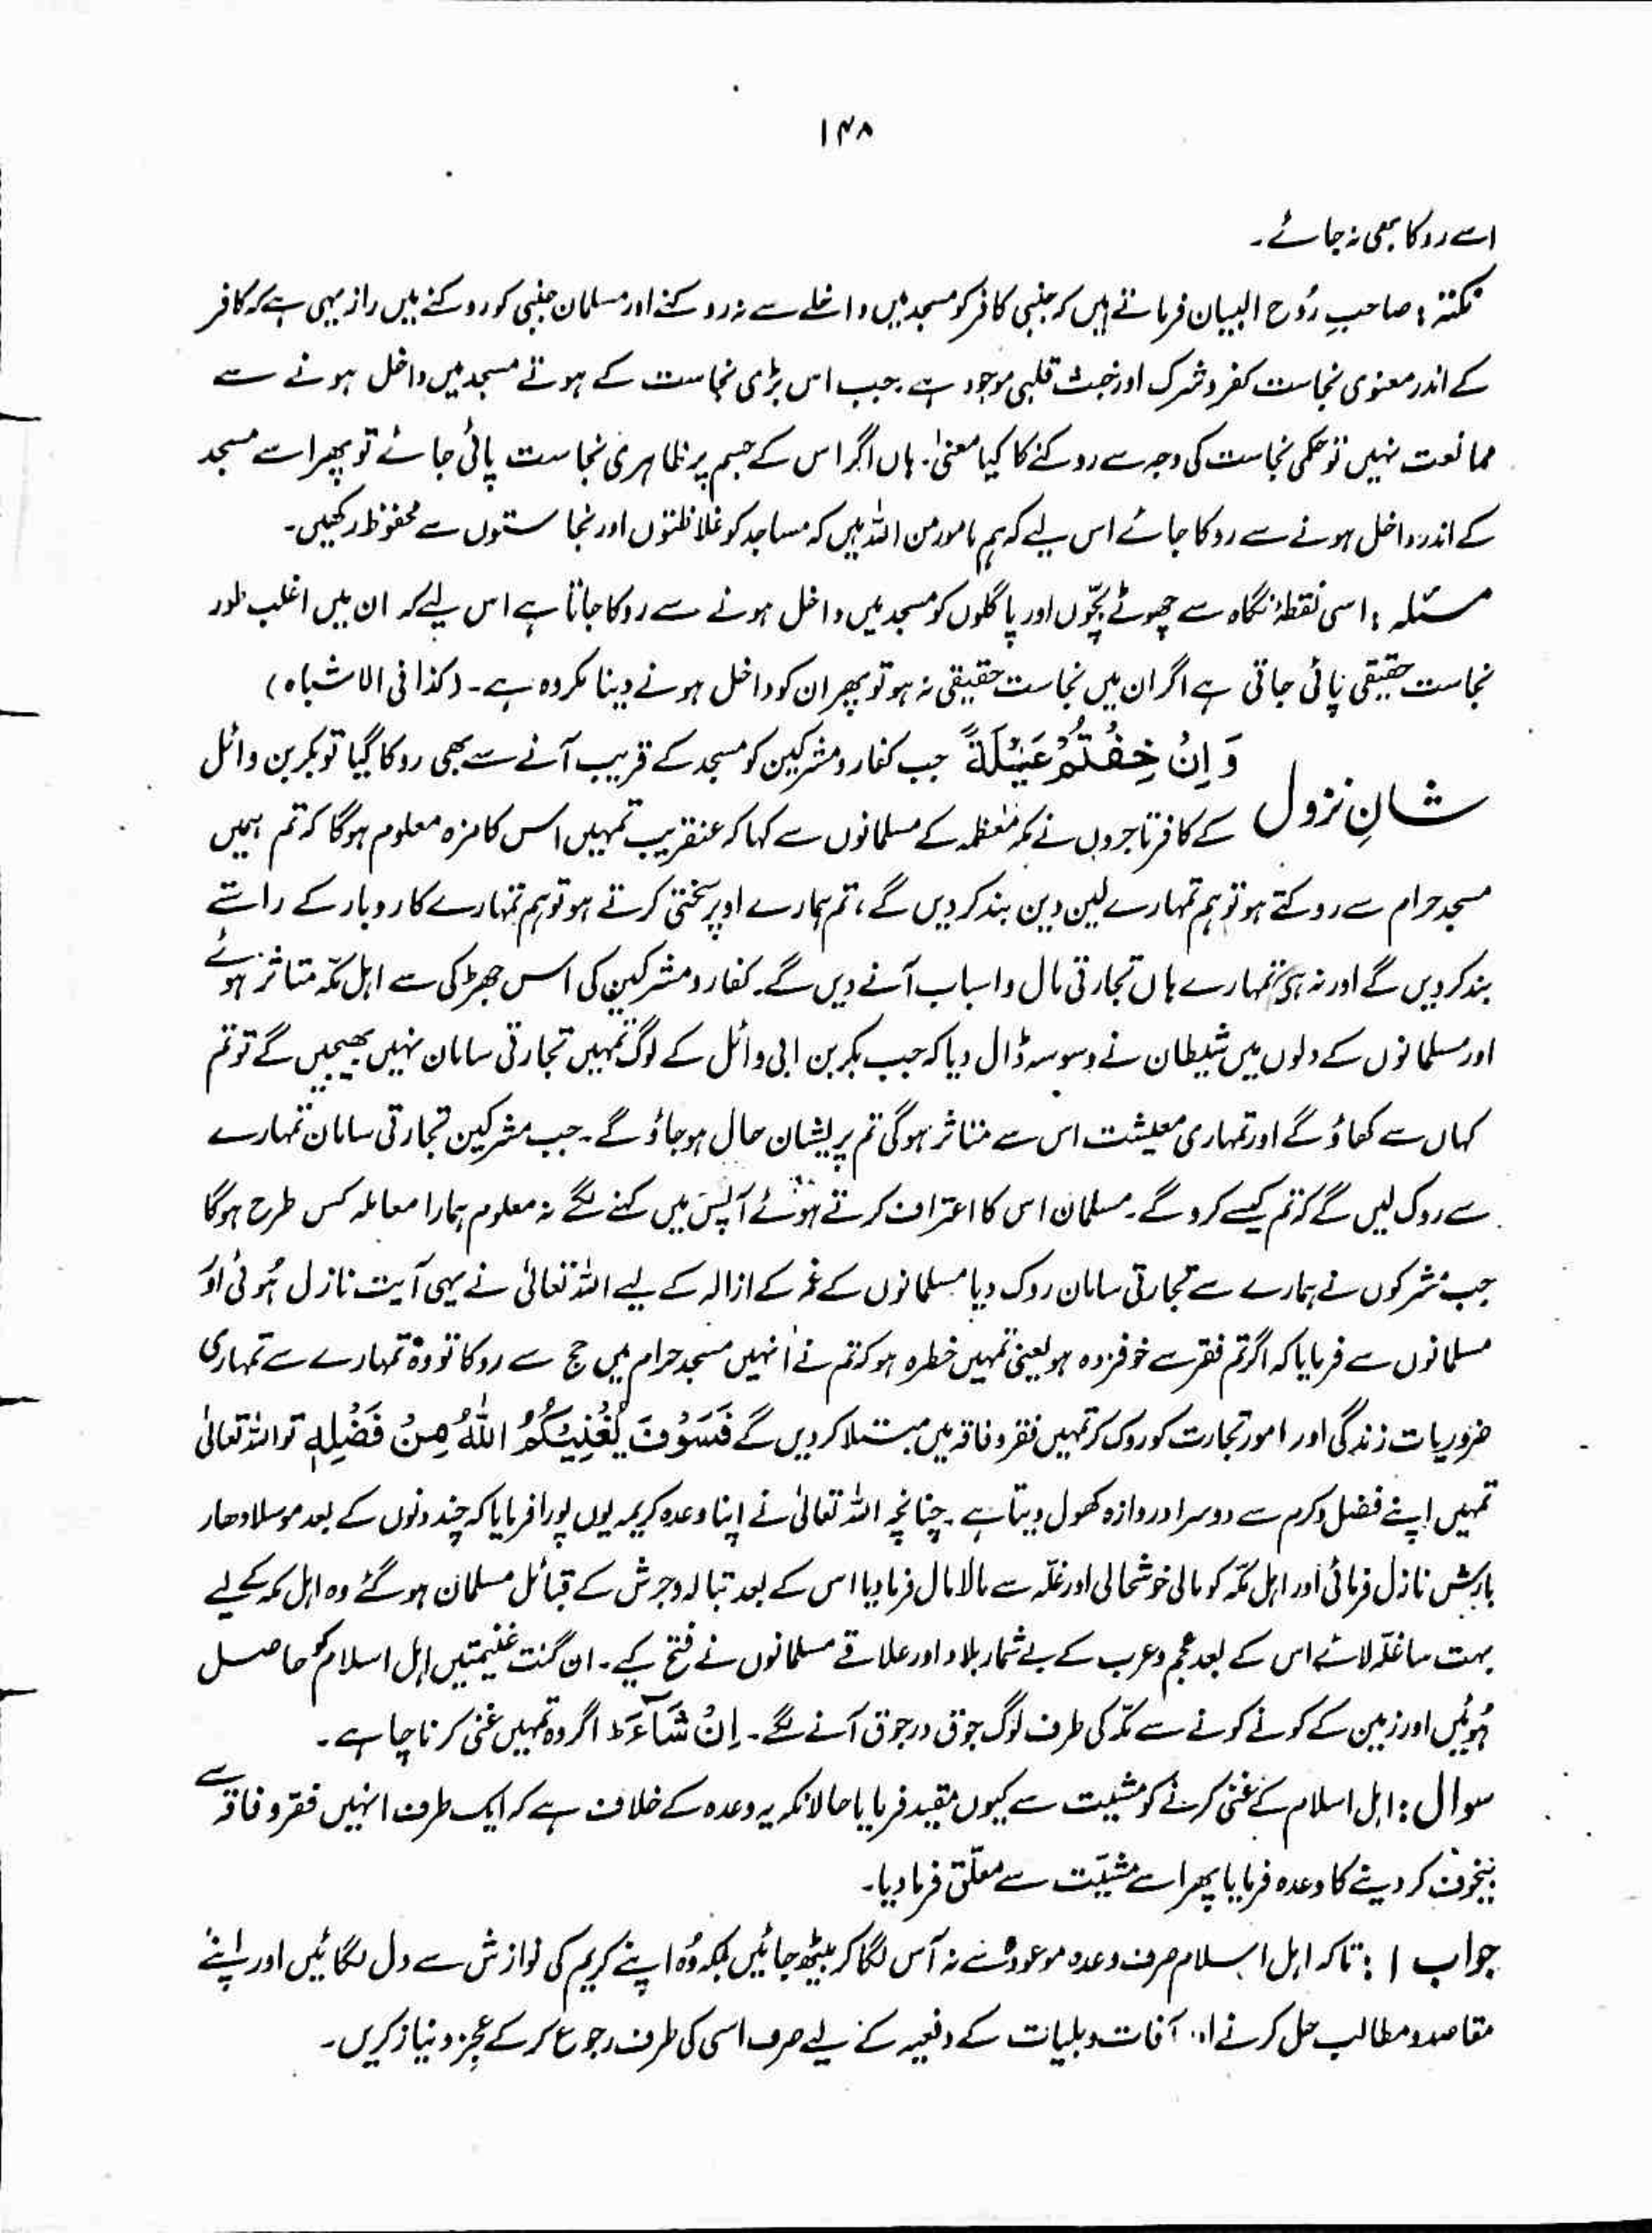 ۱۴۸
اسے روکا بھی نہ جائے۔
نکتہ : صاحبِ رُوح البیان فرماتے ہیں کہ جنبی کافر کو مسجد میں داخلے سے نہ روکنے اور مسلمان جنبی کو روکنے میں راز یہی ہے کہ کافر
کے اندر معنوی نجاست کفر و شرک اور خبث قلبی موجود ہے۔ جب اس بڑی نجاست کے ہوتے مسجد میں داخل ہونے سے
ممانعت نہیں تو حکمی نجاست کی وجہ سے روکنے کا کیا معنیٰ۔ ہاں اگر اس کے جسم پر ظاہری نجاست پائی جائے تو پھر اسے مسجد
کے اندر داخل ہونے سے روکا جائے اس لیے کہ ہم مامور من اللہ ہیں کہ مساجد کو غلاظتوں اور نجاستوں سے محفوظ رکھیں۔
مسئلہ : اسی نقطۂ نگاہ سے چھوٹے بچّوں اور پاگلوں کو مسجد میں داخل ہونے سے روکا جاتا ہے اس لیے کہ ان میں اغلب طور
نجاست حقیقی پائی جاتی ہے اگر ان میں نجاست حقیقی نہ ہو تو پھر ان کو داخل ہونے دینا مکروہ ہے۔ (کذا فی الاشباہ)
شانِ نزول وَ اِنْ خِفْتُمْ عَیْلَةً جب کفار و مشرکین کو مسجد کے قریب آنے سے بھی روکا گیا تو بکر بن وائل
کے کافر تاجروں نے مکہ معظمہ کے مسلمانوں سے کہا کہ عنقریب تمہیں اس کا مزہ معلوم ہوگا کہ تم ہمیں
مسجد حرام سے روکتے ہو تو ہم تمہارے لین دین بند کر دیں گے، تم ہمارے اوپر سختی کرتے ہو تو ہم تمہارے کاروبار کے راستے
بند کر دیں گے اور نہ ہی تمہارے ہاں تجارتی مال و اسباب آنے دیں گے۔ کفار و مشرکین کی اس جھڑکی سے اہل مکّہ متاثر ہوئے
اور مسلمانوں کے دلوں میں شیطان نے وسوسہ ڈال دیا کہ جب بکر بن ابی وائل کے لوگ تمہیں تجارتی سامان نہیں بھیجیں گے تو تم
کہاں سے کھاؤ گے اور تمہاری معیشت اس سے متاثر ہوگی تم پریشان حال ہو جاؤ گے۔ جب مشرکین تجارتی سامان تمہارے
سے روک لیں گے کہ تم کیسے کرو گے۔ مسلمان اس کا اعتراف کرتے ہوئے آپس میں کہنے لگے نہ معلوم ہمارا معاملہ کس طرح ہوگا
جب مشرکوں نے ہمارے سے تجارتی سامان روک دیا مسلمانوں کے غم کے ازالہ کے لیے اللہ تعالیٰ نے یہی آیت نازل ہُوئی اور
مسلمانوں سے فرمایا کہ اگر تم فقر سے خوفزدہ ہو یعنی تمہیں خطرہ ہو کہ تم نے اُنہیں مسجد حرام میں حج سے روکا تو وہ تمہارے سے تمہاری
ضروریات زندگی اور امور تجارت کو روک کر تمہیں فقر و فاقہ میں مبتلا کر دیں گے فَسَوْفَ یُغْنِیْکُمُ اللّٰهُ مِنْ فَضْلِهٖ تو اللہ تعالیٰ
تمہیں اپنے فضل و کرم سے دوسرا دروازہ کھول دیتا ہے۔ چنانچہ اللہ تعالیٰ نے اپنا وعدہ کریمہ یوں پورا فرمایا کہ چند دنوں کے بعد موسلا دھار
بارش نازل فرمائی اور اہل مکّہ کو مالی خوشحالی اور غلّہ سے مالا مال فرما دیا اس کے بعد تبالہ و جرش کے قبائل مسلمان ہو گئے وہ اہل مکہ کے لیے
بہت سا غلّہ لائے اس کے بعد عجم و عرب کے بے شمار بلاد اور علاقے مسلمانوں نے فتح کیے۔ ان گنت غنیمتیں اہل اسلام کو حاصل
ہُوئیں اور زمین کے کونے کونے سے مکّہ کی طرف لوگ جوق در جوق آنے لگے۔ اِنْ شَآءَ ط اگر وہ تمہیں غنی کرنا چاہے۔
سوال : اہل اسلام کے غنی کرنے کو مشیت سے کیوں مقید فرمایا حالانکہ یہ وعدہ کے خلاف ہے کہ ایک طرف انہیں فقر و فاقہ سے
بیخوف کر دینے کا وعدہ فرمایا پھر اسے مشیّت سے معلّق فرما دیا۔
جواب ۱ : تاکہ اہل اسلام صرف وعدہ موعودہ سے نہ آس لگا کر بیٹھ جائیں بلکہ وُہ اپنے کریم کی نوازش سے دل لگائیں اور اپنے
مقاصد و مطالب حل کرنے اور آفات و بلیات کے دفعیہ کے لیے صرف اسی کی طرف رجوع کر کے عجز و نیاز کریں۔